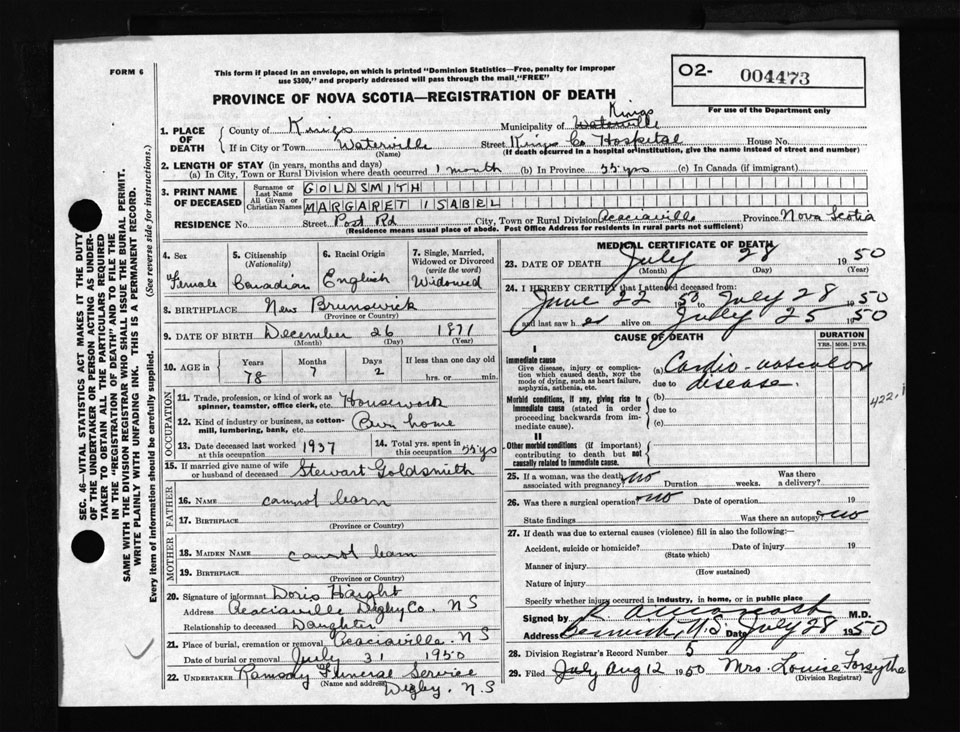 FORM 6
This form if placed in an envelope, on which is printed "Dominion Statistics—Free, penalty for improper
use $300," and properly addressed will pass through the mail "FREE"
O2- 004473
For use of the Department only
PROVINCE OF NOVA SCOTIA—REGISTRATION OF DEATH
1. PLACE OF DEATH
County of Kings Municipality of Waterville Kings
If in City or Town Waterville (Name) Street Kings Co Hospital House No.
(If death occurred in a hospital or institution, give the name instead of street and number)
2. LENGTH OF STAY (in years, months and days)
(a) In City, Town or Rural Division where death occurred 1 month (b) In Province 55 yrs (c) In Canada (if immigrant)
3. PRINT NAME OF DECEASED
Surname or Last Name GOLDSMITH
All Given or Christian Names MARGARET ISABEL
RESIDENCE No. Street Post Rd City, Town or Rural Division Acaciaville Province Nova Scotia
(Residence means usual place of abode. Post Office Address for residents in rural parts not sufficient)
4. Sex Female
5. Citizenship (Nationality) Canadian
6. Racial Origin English
7. Single, Married, Widowed or Divorced (write the word) Widowed
8. BIRTHPLACE New Brunswick
(Province or Country)
9. DATE OF BIRTH December 26 1871
(Month) (Day) (Year)
10. AGE in Years 78 Months 7 Days 2 If less than one day old hrs. or min.
OCCUPATION
11. Trade, profession, or kind of work as spinner, teamster, office clerk, etc. Housework
12. Kind of industry or business, as cotton-mill, lumbering, bank, etc. Own home
13. Date deceased last worked at this occupation 1937
14. Total yrs. spent in this occupation 55 yrs
15. If married give name of wife or husband of deceased Stewart Goldsmith
FATHER
16. NAME cannot learn
17. BIRTHPLACE
(Province or Country)
MOTHER
18. MAIDEN NAME cannot learn
19. BIRTHPLACE
(Province or Country)
20. Signature of informant Doris Haight
Address Acaciaville Digby Co. N S
Relationship to deceased Daughter
21. Place of burial, cremation or removal Acaciaville. N S
Date of burial or removal July 31 1950
22. UNDERTAKER Ramsay Funeral Service
(Name and address) Digby. N.S
MEDICAL CERTIFICATE OF DEATH
23. DATE OF DEATH July 28 1950
(Month) (Day) (Year)
24. I HEREBY CERTIFY that I attended deceased from:
June 22 1950 to July 28 1950
and last saw h er alive on July 25 1950
CAUSE OF DEATH
DURATION
YRS. MOS. DYS.
I
Immediate cause
Give disease, injury or complication which caused death, NOT the mode of dying, such as heart failure, asphyxia, asthenia, etc.
(a) Cardio-vascular
due to disease.
422.1
Morbid conditions, if any, giving rise to immediate cause (stated in order proceeding backwards from immediate cause).
(b)
due to
(c)
II
Other morbid conditions (if important) contributing to death but not causally related to immediate cause.
25. If a woman, was the death associated with pregnancy? no Duration weeks. Was there a delivery?
26. Was there a surgical operation? no Date of operation 19
State findings Was there an autopsy? no
27. If death was due to external causes (violence) fill in also the following:—
Accident, suicide or homicide? Date of injury 19
(State which)
Manner of injury
(How sustained)
Nature of injury
Specify whether injury occurred in industry, in home, or in public place
Signed by M.D.
Address Berwick, N.S. Date July 28 1950
28. Division Registrar's Record Number 5
29. Filed July Aug 12 1950 Mrs. Louise Forsythe
(Division Registrar)
SEC. 46—VITAL STATISTICS ACT MAKES IT THE DUTY
OF THE UNDERTAKER OR PERSON ACTING AS UNDERTAKER
TO OBTAIN ALL THE PARTICULARS REQUIRED
IN THE "REGISTRATION OF DEATH" AND TO FILE THE
SAME WITH THE DIVISION REGISTRAR WHO SHALL ISSUE THE BURIAL PERMIT.
WRITE PLAINLY WITH UNFADING INK. THIS IS A PERMANENT RECORD.
Every item of information should be carefully supplied. (See reverse side for instructions.)